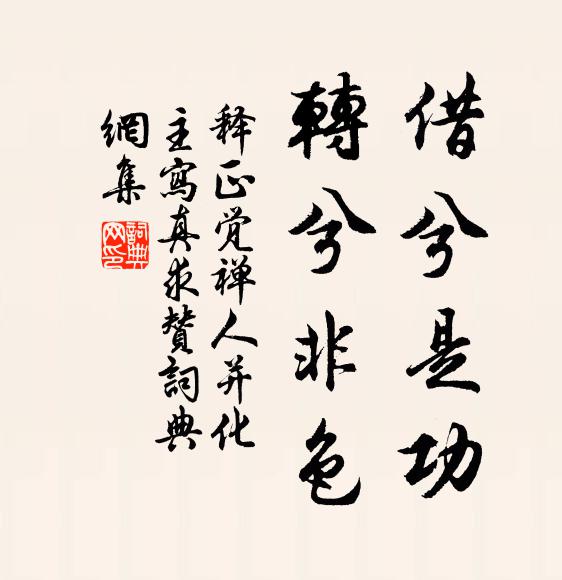 借兮是功
轉兮非色
释正觉禅人并化
主寫真求贊詞典
網集
詞典网印